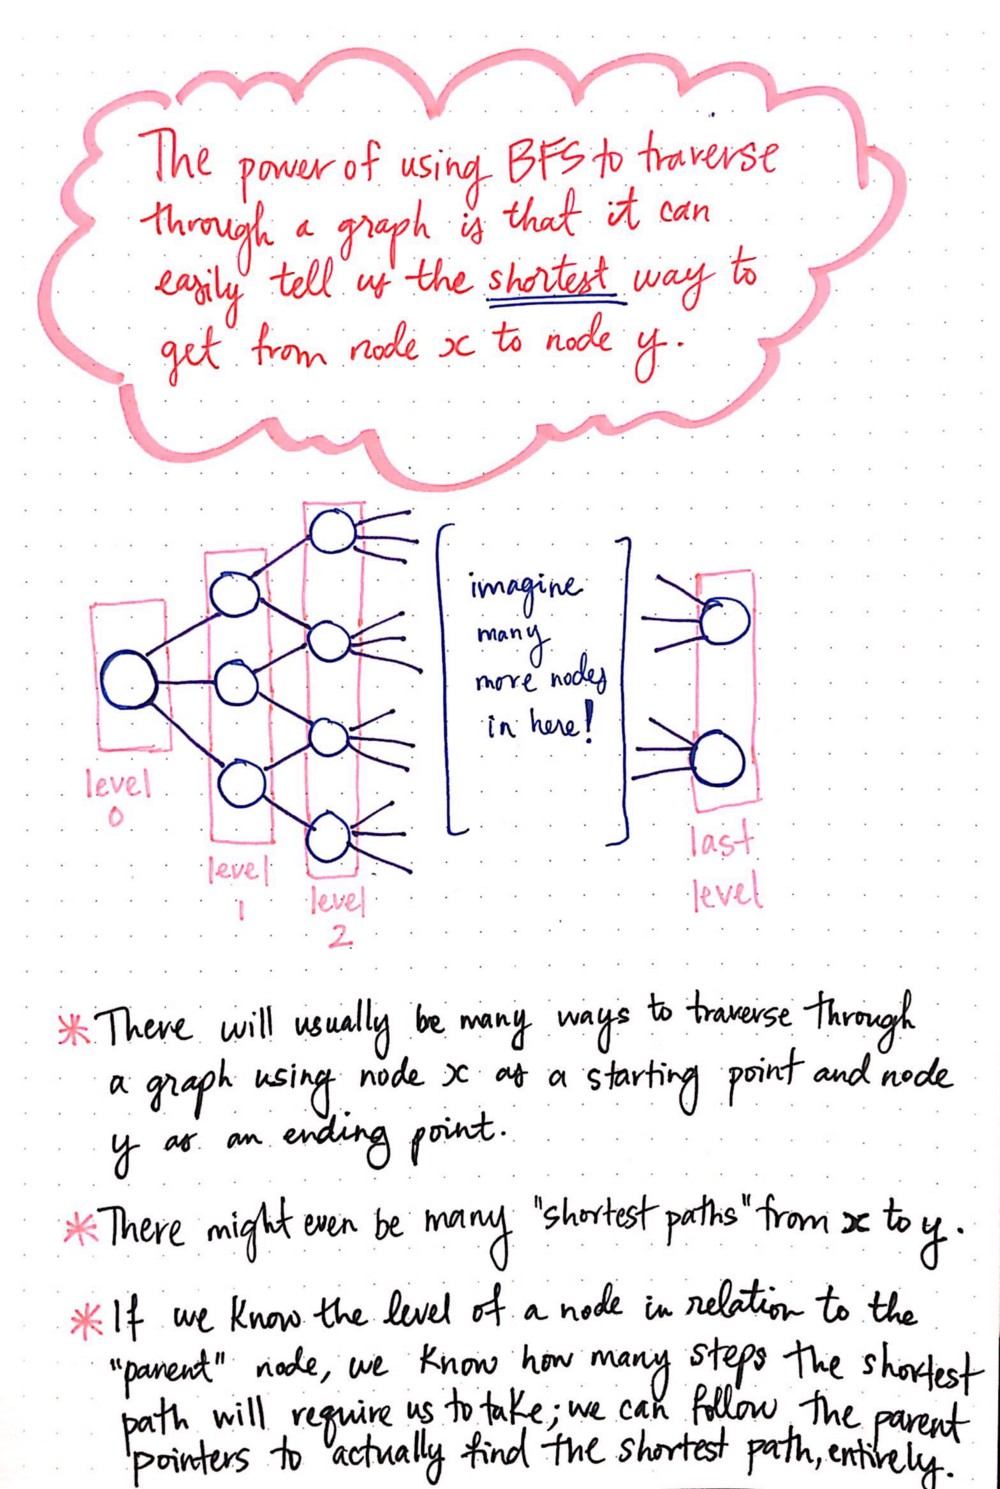 The power of using BFS to traverse
through a graph is that it can
easily tell us the shortest way to
get from node x to node y.
imagine
many
more nodes
in here!
level
0
level
1
level
2
last
level
* There will usually be many ways to traverse through
a graph using node x as a starting point and node
y as an ending point.
* There might even be many "shortest paths" from x to y.
* If we know the level of a node in relation to the
"parent" node, we know how many steps the shortest
path will require us to take; we can follow the parent
pointers to actually find the shortest path, entirely.